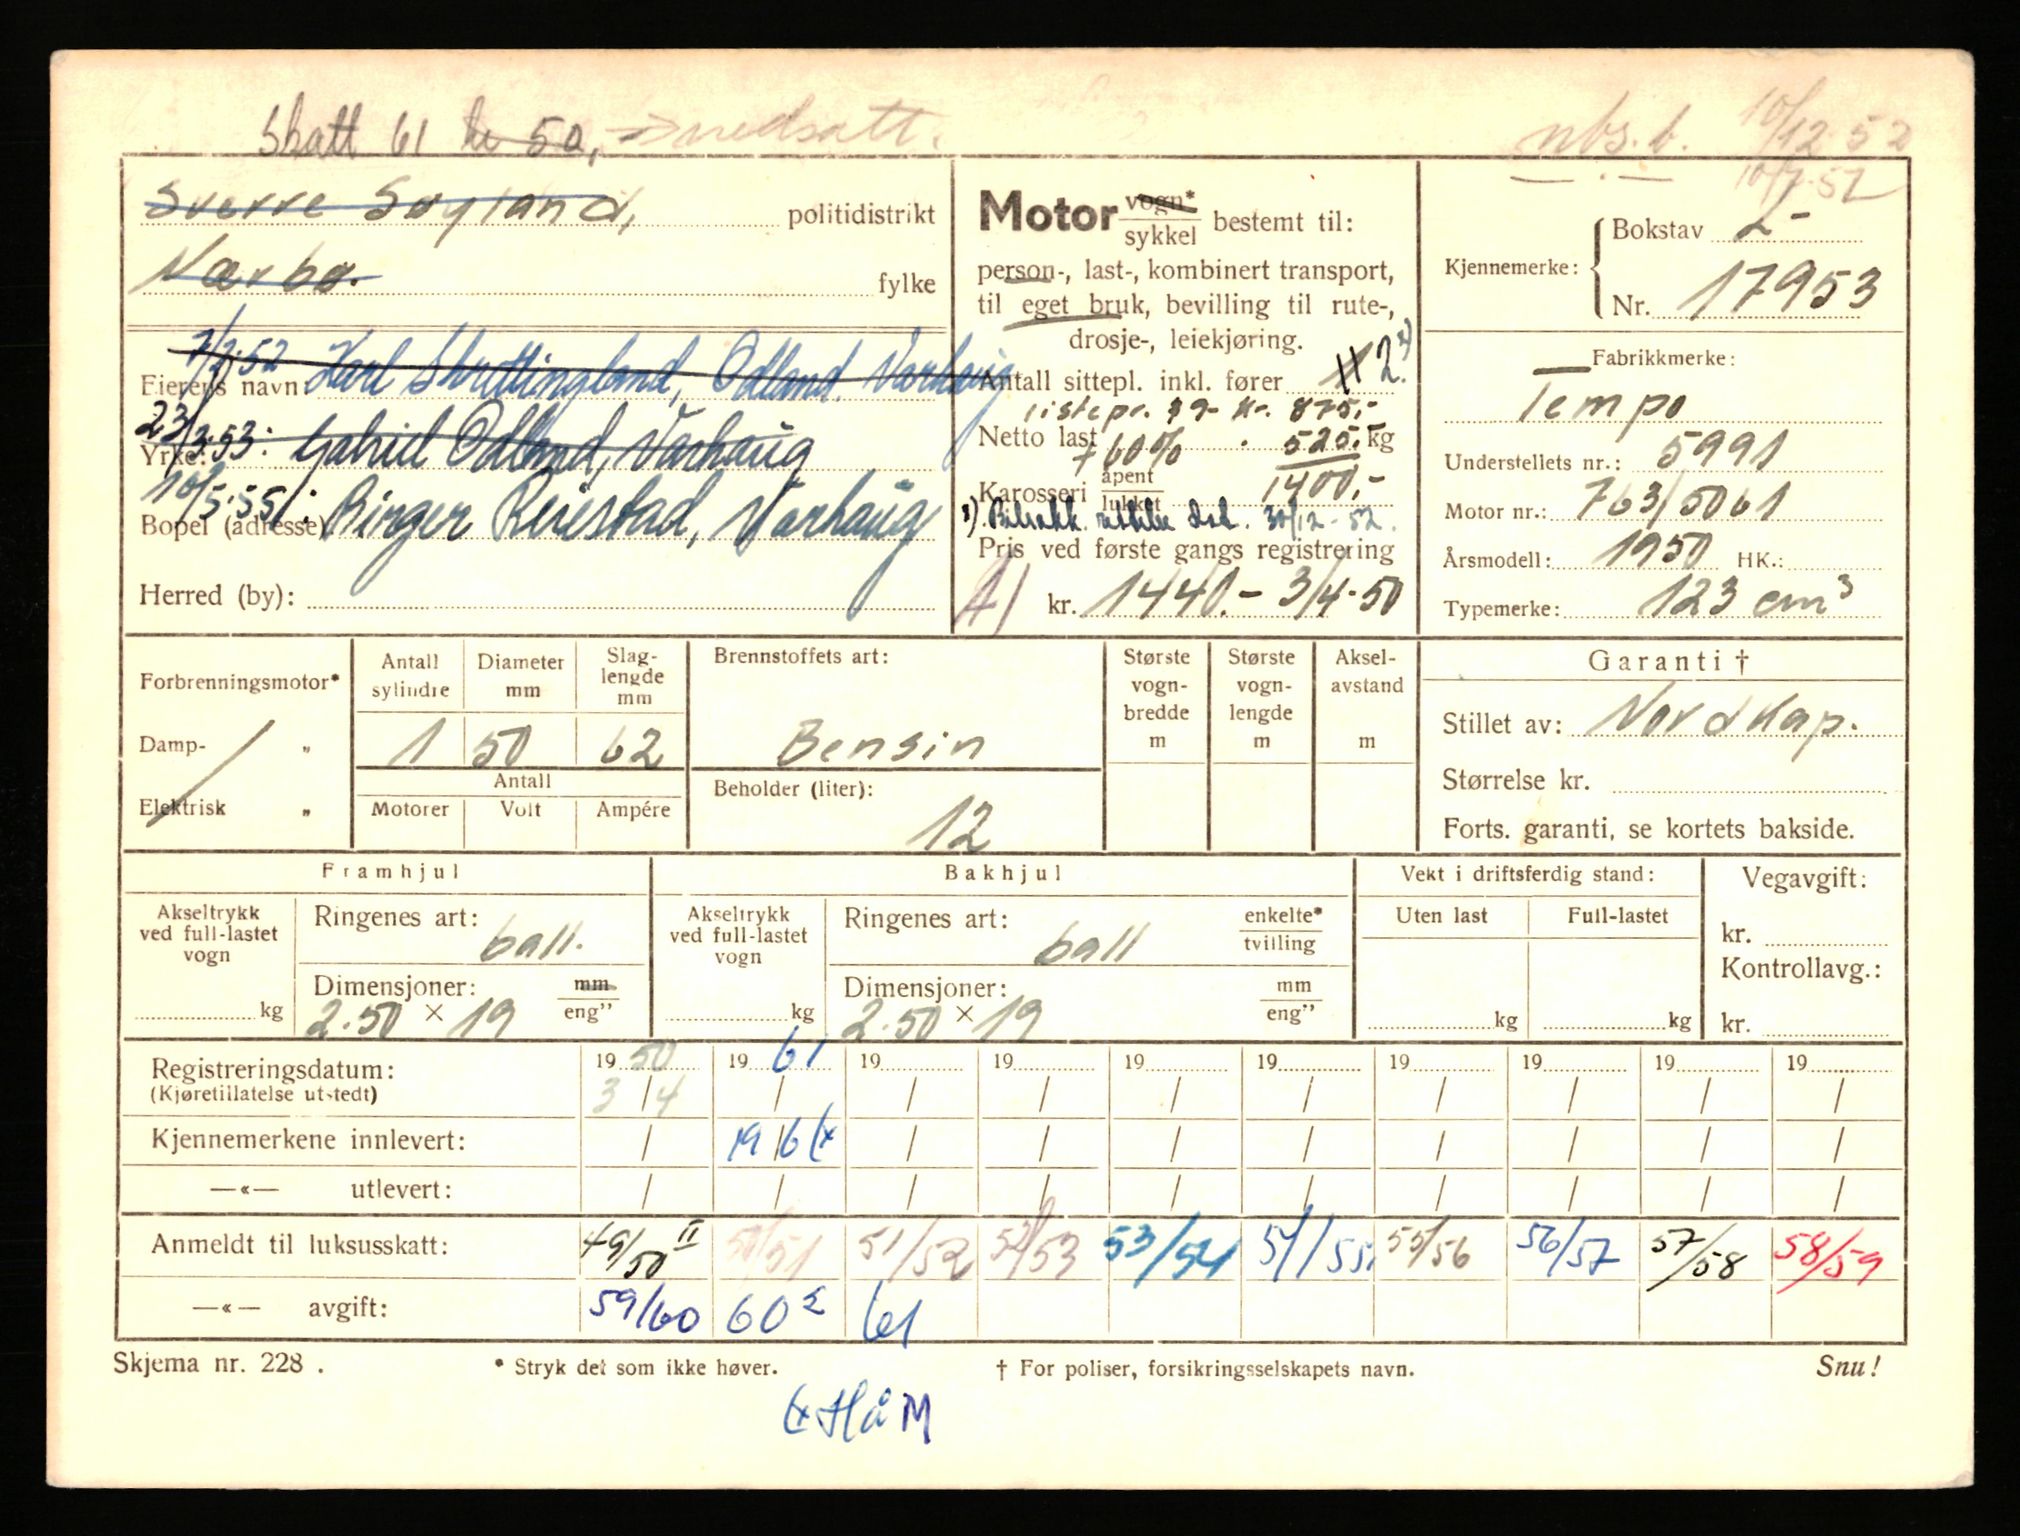 Skatt 61 kr 50, → nedsatt.
nbs. b. 10/12 52
10/7-52
Sverre Søyland, politidistrikt
Nærbø. fylke
7/2-52 Karl Skrettingland, Odland. Varhaug
Eierens navn:
23/3.53: Gabriel Odland, Varhaug
Yrke:
10/5.55: Birger Reiestad, Varhaug
Bopel (adresse)
Herred (by):
Motor vogn* sykkel bestemt til:
person-, last-, kombinert transport,
til eget bruk, bevilling til rute-,
drosje-, leiekjøring.
Antall sittepl. inkl. fører 2.
listepr. 39- kr. 875,-
Netto last + 60% . 525,- kg
Karosseri åpent lukket 1400,-
Pris ved første gangs registrering
A) kr. 1440.- 3/4-50
Kjennemerke: Bokstav L-
Nr. 17953
Fabrikkmerke:
Tempo
Understellets nr.: 5991
Motor nr.: 763/5061
Årsmodell: 1950 HK.:
Typemerke: 123 cm³
Forbrenningsmotor*
Damp- „
Elektrisk „
Antall sylindre Diameter mm Slag-lengde mm
1 50 62
Antall
Motorer Volt Ampére
Brennstoffets art:
Bensin
Beholder (liter):
12
Største vogn-bredde m
Største vogn-lengde m
Aksel-avstand m
Garanti †
Stillet av: Nordkap.
Størrelse kr.
Forts. garanti, se kortets bakside.
Framhjul
Akseltrykk ved full-lastet vogn
kg
Ringenes art: ball.
Dimensjoner: mm eng”
2.50 × 19
Bakhjul
Akseltrykk ved full-lastet vogn
kg
Ringenes art: ball enkelte* tvilling
Dimensjoner: mm eng”
2.50 × 19
Vekt i driftsferdig stand:
Uten last Full-lastet
kg kg
Vegavgift:
kr.
Kontrollavg.:
kr.
Registreringsdatum: 1950 1961 19 19 19 19 19 19 19 19
(Kjøretillatelse utstedt) 3/4 / / / / / / / / /
Kjennemerkene innlevert: / 19/6 / / / / / / / /
—«— utlevert: / / / / / / / / / /
Anmeldt til luksusskatt: 49/50 II 50/51 51/52 52/53 53/54 54/55, 55/56 56/57 57/58 58/59
—«— avgift: 59/60 60² 61
Skjema nr. 228 . * Stryk det som ikke høver. † For poliser, forsikringsselskapets navn. Snu!
Hå M